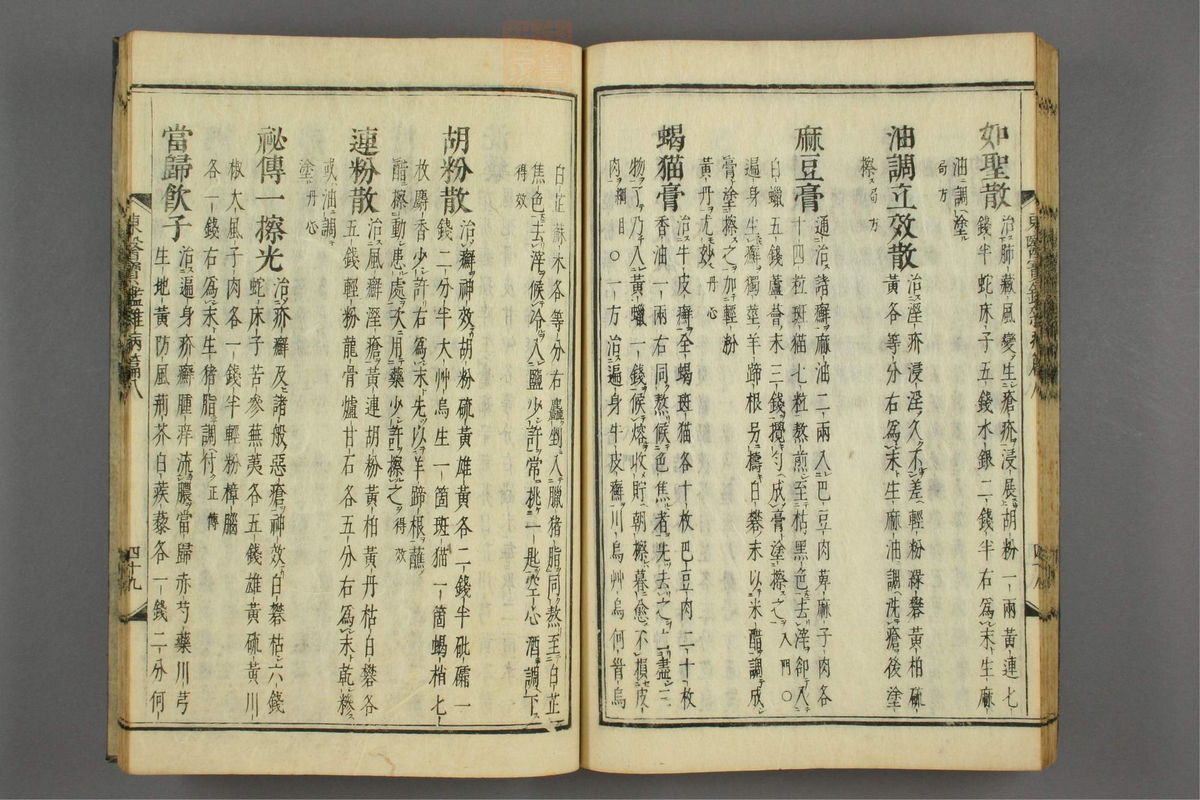 如聖散 治肺藏風變生瘡疥浸展胡粉一兩黃連七
錢半蛇床子五錢水銀二錢半右爲末生麻
油調塗
局方
油調立效散 治溼疥浸淫久不差輕粉綠礬黃柏硫
黃各等分右爲末生麻油調洗瘡後塗
擦局方
麻豆膏 通治諸癬麻油二兩入巴豆肉萆麻子肉各
十四粒斑猫七粒熬煎至枯黑色去滓卻入
白蠟五錢蘆薈末三錢攪勻成膏塗擦之入門○
遍身生癬獨莖羊蹄根另擣白礬末以米醋調成
膏塗擦之加輕粉
黃丹尤妙丹心
蝎猫膏 治牛皮癬全蝎斑猫各十枚巴豆肉二十枚
香油一兩右同熬候色焦者先去之去盡三
物了乃入黃蠟一錢候熔收貯朝擦暮愈不損皮
肉綱目○一方治遍身牛皮癬川烏艸烏何首烏
白芷蘇木各等分右麤剉入臘猪脂同熬至白芷
焦色去滓候冷入鹽少許常挑一匙空心酒調下
得效
胡粉散 治癬神效胡粉硫黃雄黃各二錢半砒礵一
錢二分半大艸烏生一箇斑猫一箇蝎梢七
枚麝香少許右爲末先以羊蹄根蘸
醋擦動患處次用藥少許擦之得效
連粉散 治風癬溼瘡黃連胡粉黃柏黃丹枯白礬各
五錢輕粉龍骨爐甘石各五分右爲末乾糝
或油調
塗丹心
祕傳一擦光 治疥癬及諸般惡瘡神效白礬枯六錢
蛇床子苦參蕪荑各五錢雄黃硫黃川
椒大風子肉各一錢半輕粉樟腦
各一錢右爲末生猪脂調付正傳
當歸飲子 治遍身疥癬腫痒流膿當歸赤芍藥川芎
生地黃防風荊芥白蒺藜各一錢二分何
東醫寶鑑雜病篇八
四十九